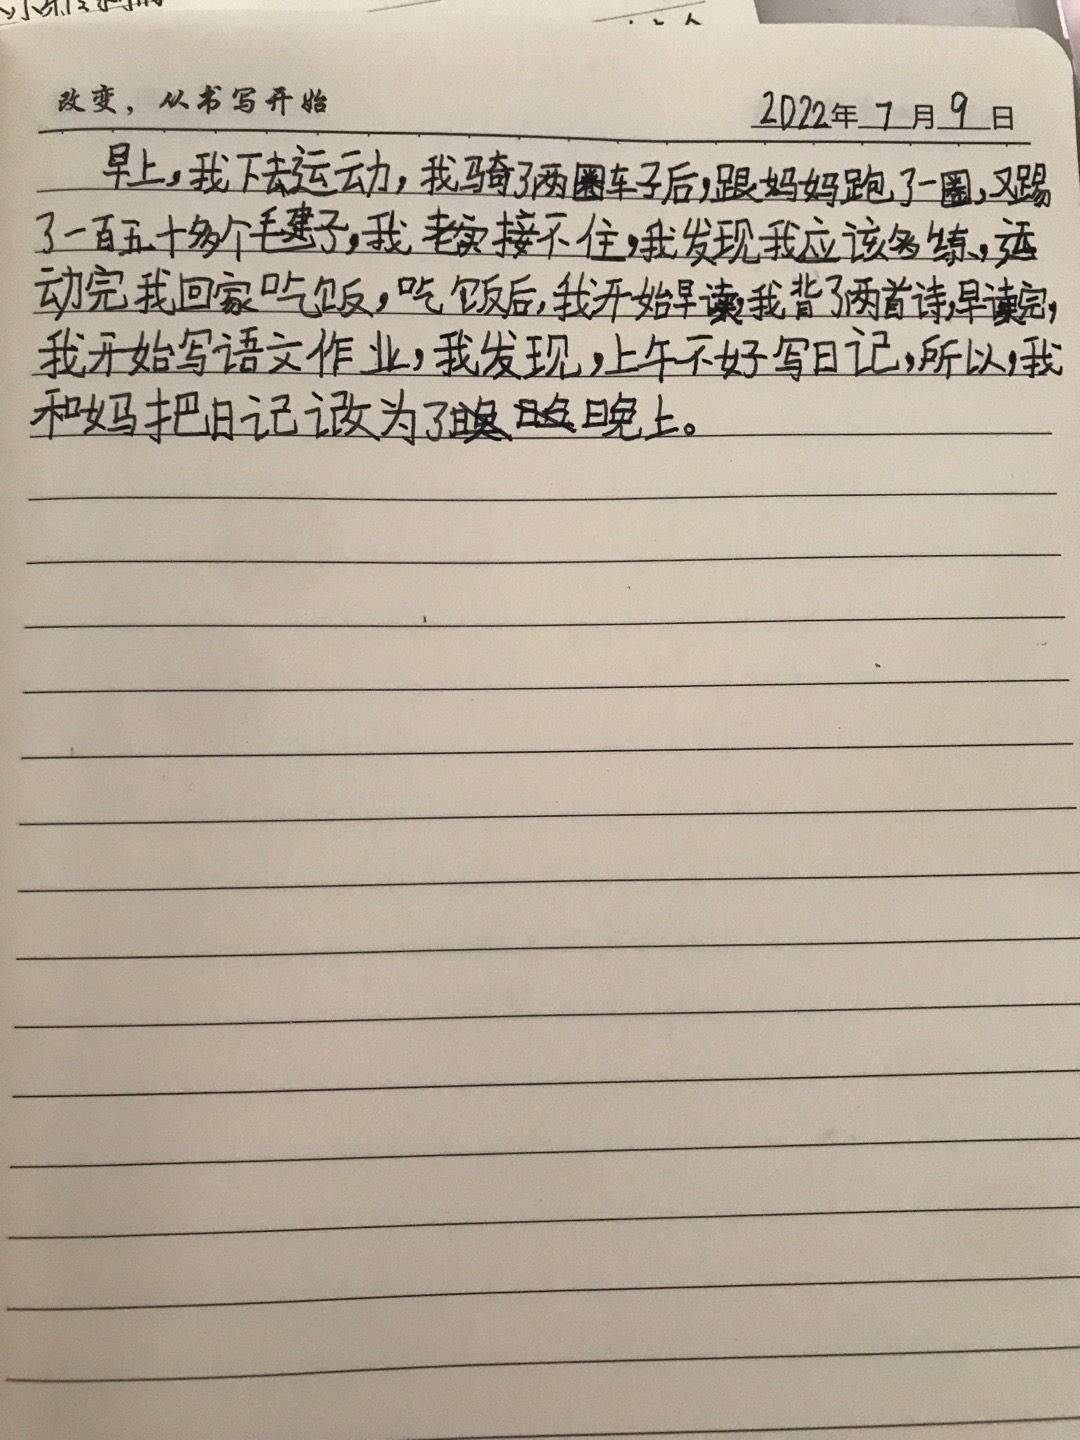 改变，从书写开始
2022年7月9日
早上，我下去运动，我骑了两圈车子后，跟妈妈跑了一圈，又踢
了一百五十多个毛建子，我老实接不住，我发现我应该多练，运
动完我回家吃饭，吃饭后，我开始早读，我背了两首诗，早读完，
我开始写语文作业，我发现，上午不好写日记，所以，我
和妈把日记记改为了晚上。